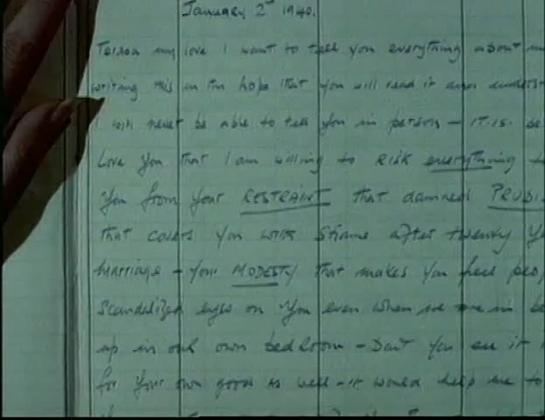 January 2nd 1940.
Teresa my love I want to tell you everything about m
writing this in the hope that you will read it and underst
I will never be able to tell you in person - it is be
Love you that I am willing to RISK everything t
You from your RESTRAINT that damned PRUDI
that covers you with shame after twenty ye
Marriage - your MODESTY that makes you feel peo
Scandalized eyes on you even when we are in be
up in our own bedroom - Don't you see it i
for your own good as well - it would help me to